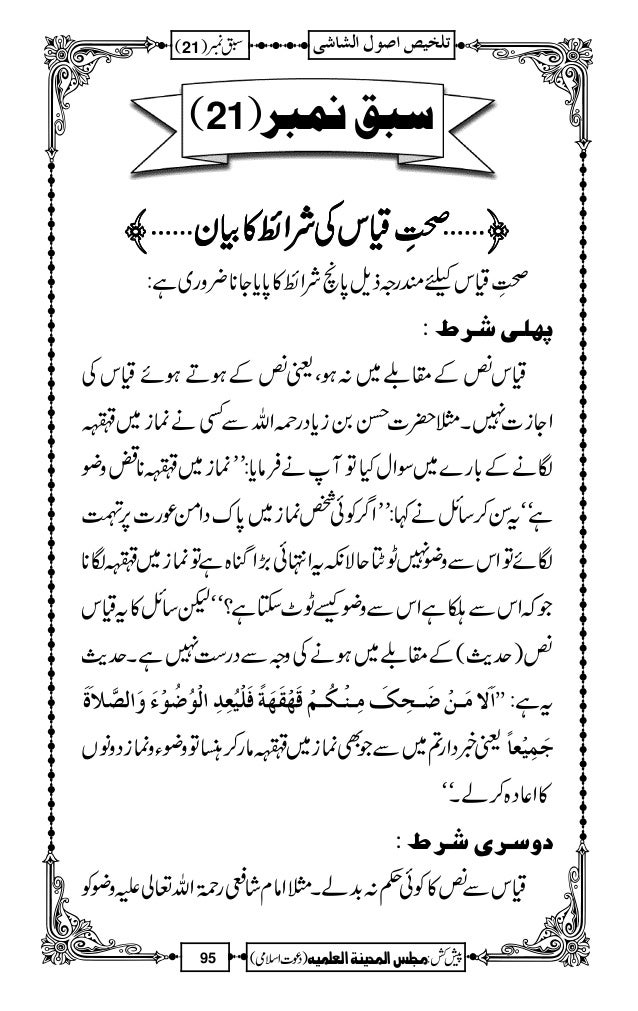 تلخیص اصول الشاشی سبق نمبر (21)
سبق نمبر (21)
......صحتِ قیاس کی شرائط کا بیان......
صحتِ قیاس کیلئے مندرجہ ذیل پانچ شرائط کا پایا جانا ضروری ہے:
پہلی شرط :
قیاس نص کے مقابلے میں نہ ہو، یعنی نص کے ہوتے ہوئے قیاس کی
اجازت نہیں۔ مثلا حضرت حسن بن زیاد رحمہ اللہ سے کسی نے نماز میں قہقہہ
لگانے کے بارے میں سوال کیا تو آپ نے فرمایا:’’نماز میں قہقہہ ناقض وضو
ہے‘‘ یہ سن کر سائل نے کہا:’’اگر کوئی شخص نماز میں پاک دامن عورت پر تہمت
لگائے تو اس سے وضو نہیں ٹوٹتا حالانکہ یہ انتہائی بڑا گناہ ہے تو نماز میں قہقہہ لگانا
جو کہ اس سے ہلکا ہے اس سے وضو کیسے ٹوٹ سکتا ہے؟‘‘ لیکن سائل کا یہ قیاس
نص (حدیث) کے مقابلے میں ہونے کی وجہ سے درست نہیں ہے۔ حدیث
یہ ہے: ’’اَلَا مَنْ ضَحِکَ مِنْکُمْ قَهْقَهَةً فَلْیُعِدِ الْوُضُوْءَ وَالصَّلَاةَ
جَمِیْعاً یعنی خبردار تم میں سے جو بھی نماز میں قہقہہ مار کر ہنسا تو وضوء و نماز دونوں
کا اعادہ کر لے۔‘‘
دوسری شرط :
قیاس سے نص کا کوئی حکم نہ بدلے۔ مثلا امام شافعی رحمۃ اللہ تعالی علیہ وضو کو
پیش کش: مجلس المدینة العلمیه (دعوت اسلامی) 95